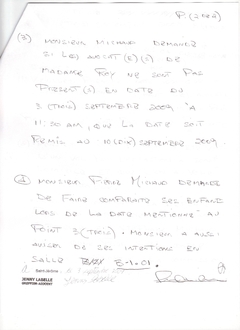 P. (2 de 2)
(3) MONSIEUR MICHAUD DEMANDE
SI LES AVOCAT(E)(S) DE
MADAME ROY NE SONT PAS
PRÉSENT(S) EN DATE DU
3 (TROIS) SEPTEMBRE 2009 À
11:30 AM, QUE LA DATE SOIT
REMIS AU 10 (DIX) SEPTEMBRE 2009.
MONSIEUR PIERRE MICHAUD DEMANDE
DE FAIRE COMPARAITRE SES ENFANTS
LORS DE LA DATE MENTIONNÉ AU
POINT 3 (TROIS). MONSIEUR A AUSSI
DE SES INTENTIONS EN
SALLE B-1.01.
Saint-Jérôme
JERRY LABELLE
GREFFIER ADJOINT